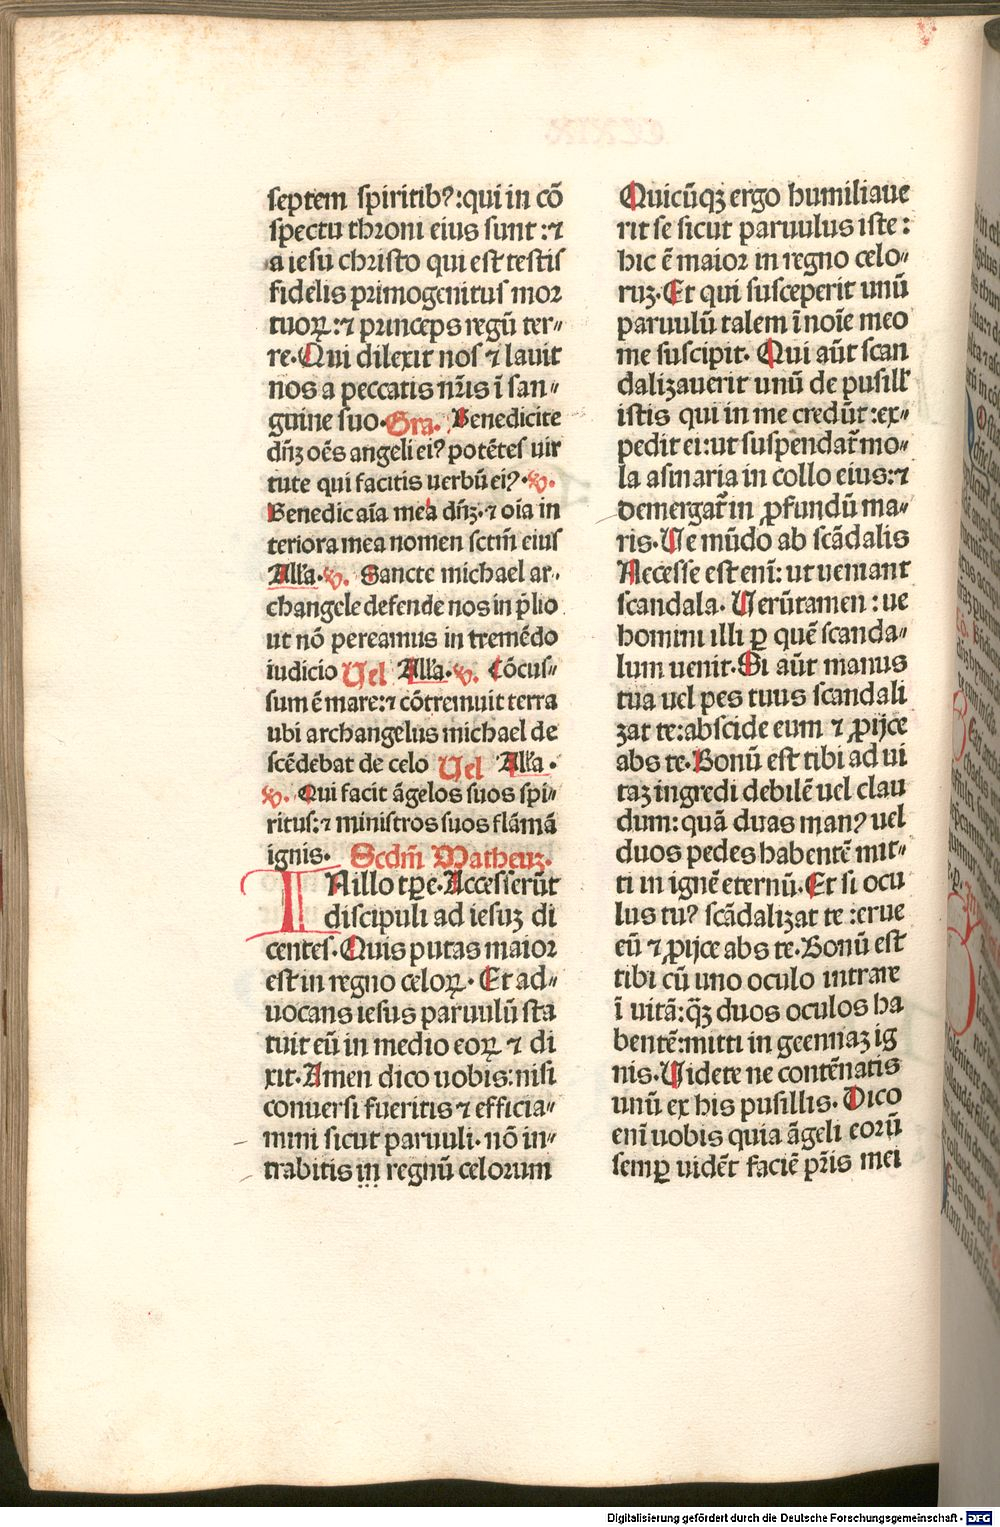 septem spiritibꝰ:qui in cõ
spectu throni eius sunt:⁊
a iesu christo qui est testis
fidelis primogenitus mor
tuoꝝ:⁊ princeps regũ ter⸗
re.Qui dilexit nos ⁊ lauit
nos a peccatis nr̃is ĩ san⸗
guine suo.Gra. Benedicite
dñꝫ oẽs angeli eiꝰ potẽtes uir
tute qui facitis uerbũ eiꝰ.℣.
Benedic aĩa mea dñꝫ.⁊ oĩa in
teriora mea nomen sctm̃ eius
All'a.℣. Sancte michael ar⸗
changele defende nos in p̃lio
ut nõ pereamus in tremẽdo
iudicio Uel All'a.℣. Cõcus⸗
sum ẽ mare:⁊ cõtremuit terra
ubi archangelus michael de
scẽdebat de celo Uel All'a.
℣. Qui facit ãgelos suos spi⸗
ritus:⁊ ministros suos flãmã
ignis. Scdm̃ Matheuꝫ.
IN illo tꝑe.Accesserũt
discipuli ad iesuꝫ di
centes.Quis putas maior
est in regno celoꝝ. Et ad⸗
uocans iesus paruulũ sta
tuit eũ in medio eoꝝ ⁊ di
xit.Amen dico uobis:nisi
conuersi fueritis ⁊ efficia⸗
mini sicut paruuli.nõ in⸗
trabitis in regnũ celorum
Quicũqꝫ ergo humiliaue
rit se sicut paruulus iste:
hic ẽ maior in regno celo⸗
ruꝫ.Et qui susceperit unũ
paruulũ talem ĩ noĩe meo
me suscipit. Qui aũt scan
dalizauerit unũ de pusill'
istis qui in me credũt:ex⸗
pedit ei:ut suspendat̃ mo⸗
la asinaria in collo eius:⁊
demergat̃ in ꝓfundũ ma⸗
ris.Ue mũdo ab scãdalis
Necesse est enĩ:ut ueniant
scandala. Uerũtamen:ue
homini illi ꝑ quẽ scanda⸗
lum uenit.Si aũt manus
tua uel pes tuus scandali
zat te:abscide eum ⁊ ꝓijce
abs te.Bonũ est tibi ad ui
taꝫ ingredi debilẽ uel clau
dum:quã duas manꝰ uel
duos pedes habentẽ mit⸗
ti in ignẽ eternũ.Et si ocu
lus tuꝰ scãdalizat te:erue
eũ ⁊ ꝓijce abs te.Bonũ est
tibi cũ uno oculo intrare
ĩ uitã:qꝫ̃ duos oculos ha
bentẽ:mitti in geennaꝫ ig
nis.Uidete ne contẽnatis
unũ ex his pusillis. Dico
enĩ uobis quia ãgeli eorũ
semꝑ uidẽt faciẽ pr̃is mei
Digitalisierung gefördert durch die Deutsche Forschungsgemeinschaft - DFG